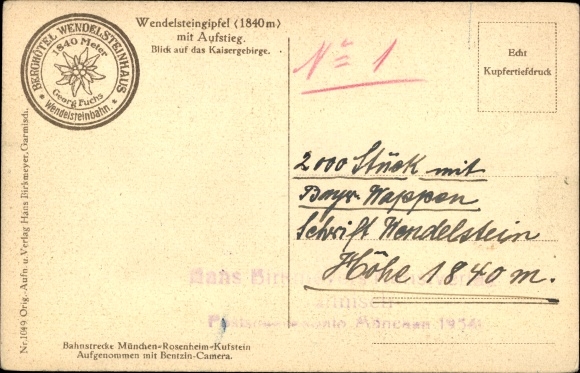 BERGHOTEL WENDELSTEINHAUS
1840 Meter
Georg Fuchs
* Wendelsteinbahn *
Wendelsteingipfel (1840 m)
mit Aufstieg.
Blick auf das Kaisergebirge.
Nr. 1049 Orig.-Aufn. u. Verlag Hans Birkmeyer, Garmisch.
Bahnstrecke München-Rosenheim-Kufstein
Aufgenommen mit Bentzin-Camera.
No 1
Echt
Kupfertiefdruck
2000 Stück mit
Bayr. Wappen
Schrift Wendelstein
Höhe 1840 m.
Hans
München